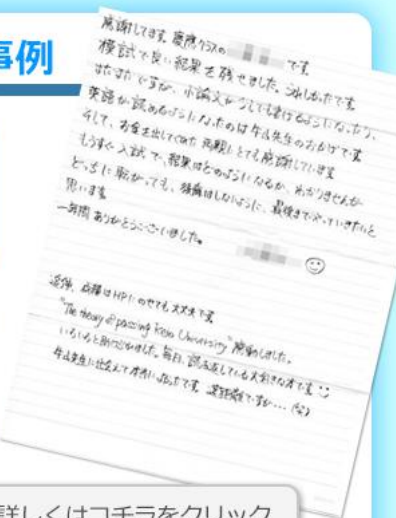 事例
感謝してます。慶應クラスの です。
模試で良い結果を残せました。うれしかったです。
まだまだですが、小論文がうしても書けるようになったり、
英語が読めるようになったのは牛山先生のおかげです。
そして、お金を出してくれた両親にとても感謝しています。
もうすぐ入試で、結果はどのようになるか、わかりませんが
どっちに転がっても、後悔はしないように、最後までやっていきたいと
思います。
一年間ありがとうございました。
追伸、成績はHPにのせても大丈夫です。
"The theory of passing Keio University" 感動しました。
いろいろと助けになりました。毎日、読み返している大好きな本です
牛山先生に出会えて本当に良かったです。遠距離ですが…(笑)
詳しくはコチラをクリック